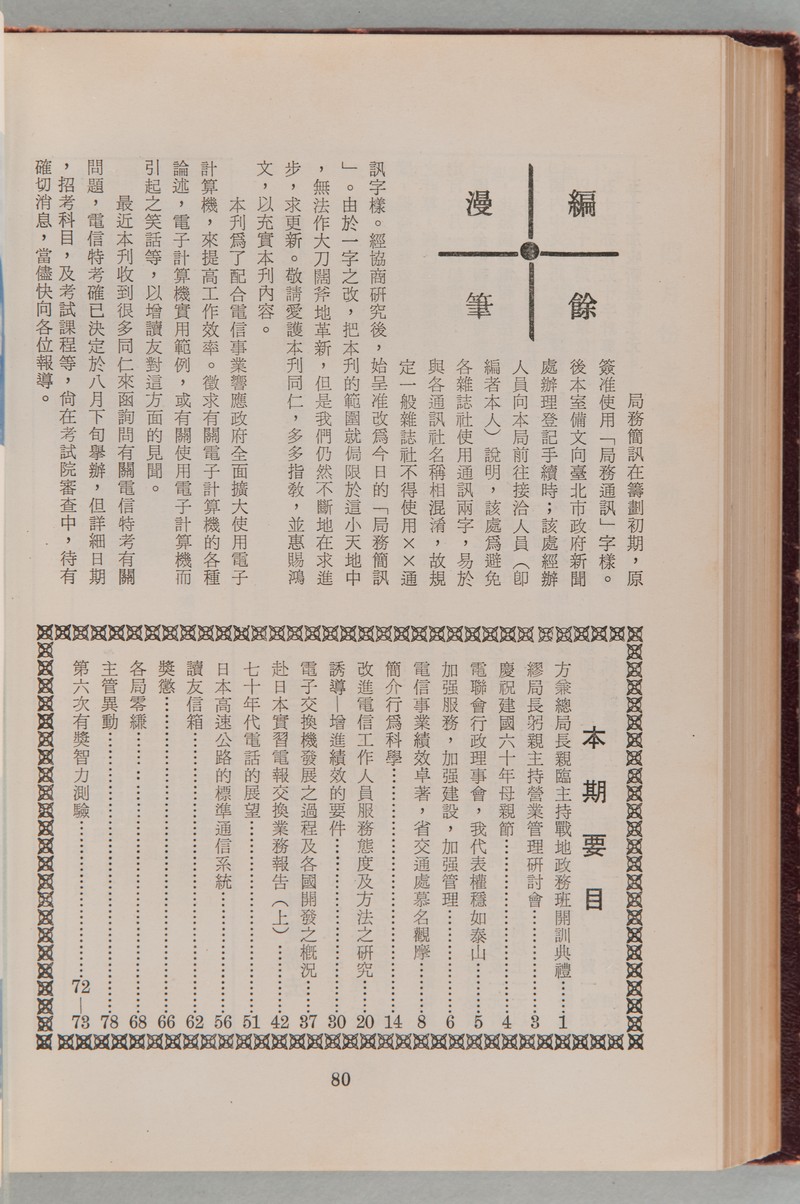 編餘
漫筆
局務簡訊在籌劃初期，原
簽准使用「局務通訊」字樣。
後本室備文向臺北市政府新聞
處辦理登記手續時；該處經辦
人員向本局前往接洽人員（卽
編者本人）說明，該處爲避免
各雜誌社使用通訊兩字，易於
與各通訊社名稱相混淆，故規
定一般雜誌社不得使用××通
訊字樣。經協商研究後，始呈准改爲今日的「局務簡訊
」。由於一字之改，把本刊的範圍就侷限於這小天地中
，無法作大刀闊斧地革新，但是我們仍然不斷地在求進
步，求更新。敬請愛護本刊同仁，多多指教，並惠賜鴻
文，以充實本刊內容。
本刊爲了配合電信事業響應政府全面擴大使用電子
計算機，來提高工作效率。徵求有關電子計算機的各種
論述，電子計算機實用範例，或有關使用電子計算機而
引起之笑話等，以增讀友對這方面的見聞。
最近本刊收到很多同仁來函詢問有關電信特考有關
問題，電信特考確已決定於八月下旬舉辦，但詳細日期
，招考科目，及考試課程等，尙在考試院審查中，待有
確切消息，當儘快向各位報導。
本期要目
方兼總局長親臨主持戰地政務班開訓典禮……1
繆局長躬親主持營業管理研討會……3
慶祝建國六十年母親節……4
電聯會行政理事會，我代表權穩如泰山……5
加强服務，加强建設，加强管理……6
電信事業績效卓著，省交通處慕名觀摩……8
簡介行爲科學……14
改進電信工作人員服務態度及方法之研究……20
誘導—增進績效的要件……30
電子交換機發展之過程及各國開發之概況……37
赴日本實習電報交換業務報告（上）……42
七十年代電話的展望……51
日本高速公路的標準通信系統……56
讀友信箱……62
獎懲……66
各局零縑……68
主管異動……78
第六次有獎智力測驗……72—73
80